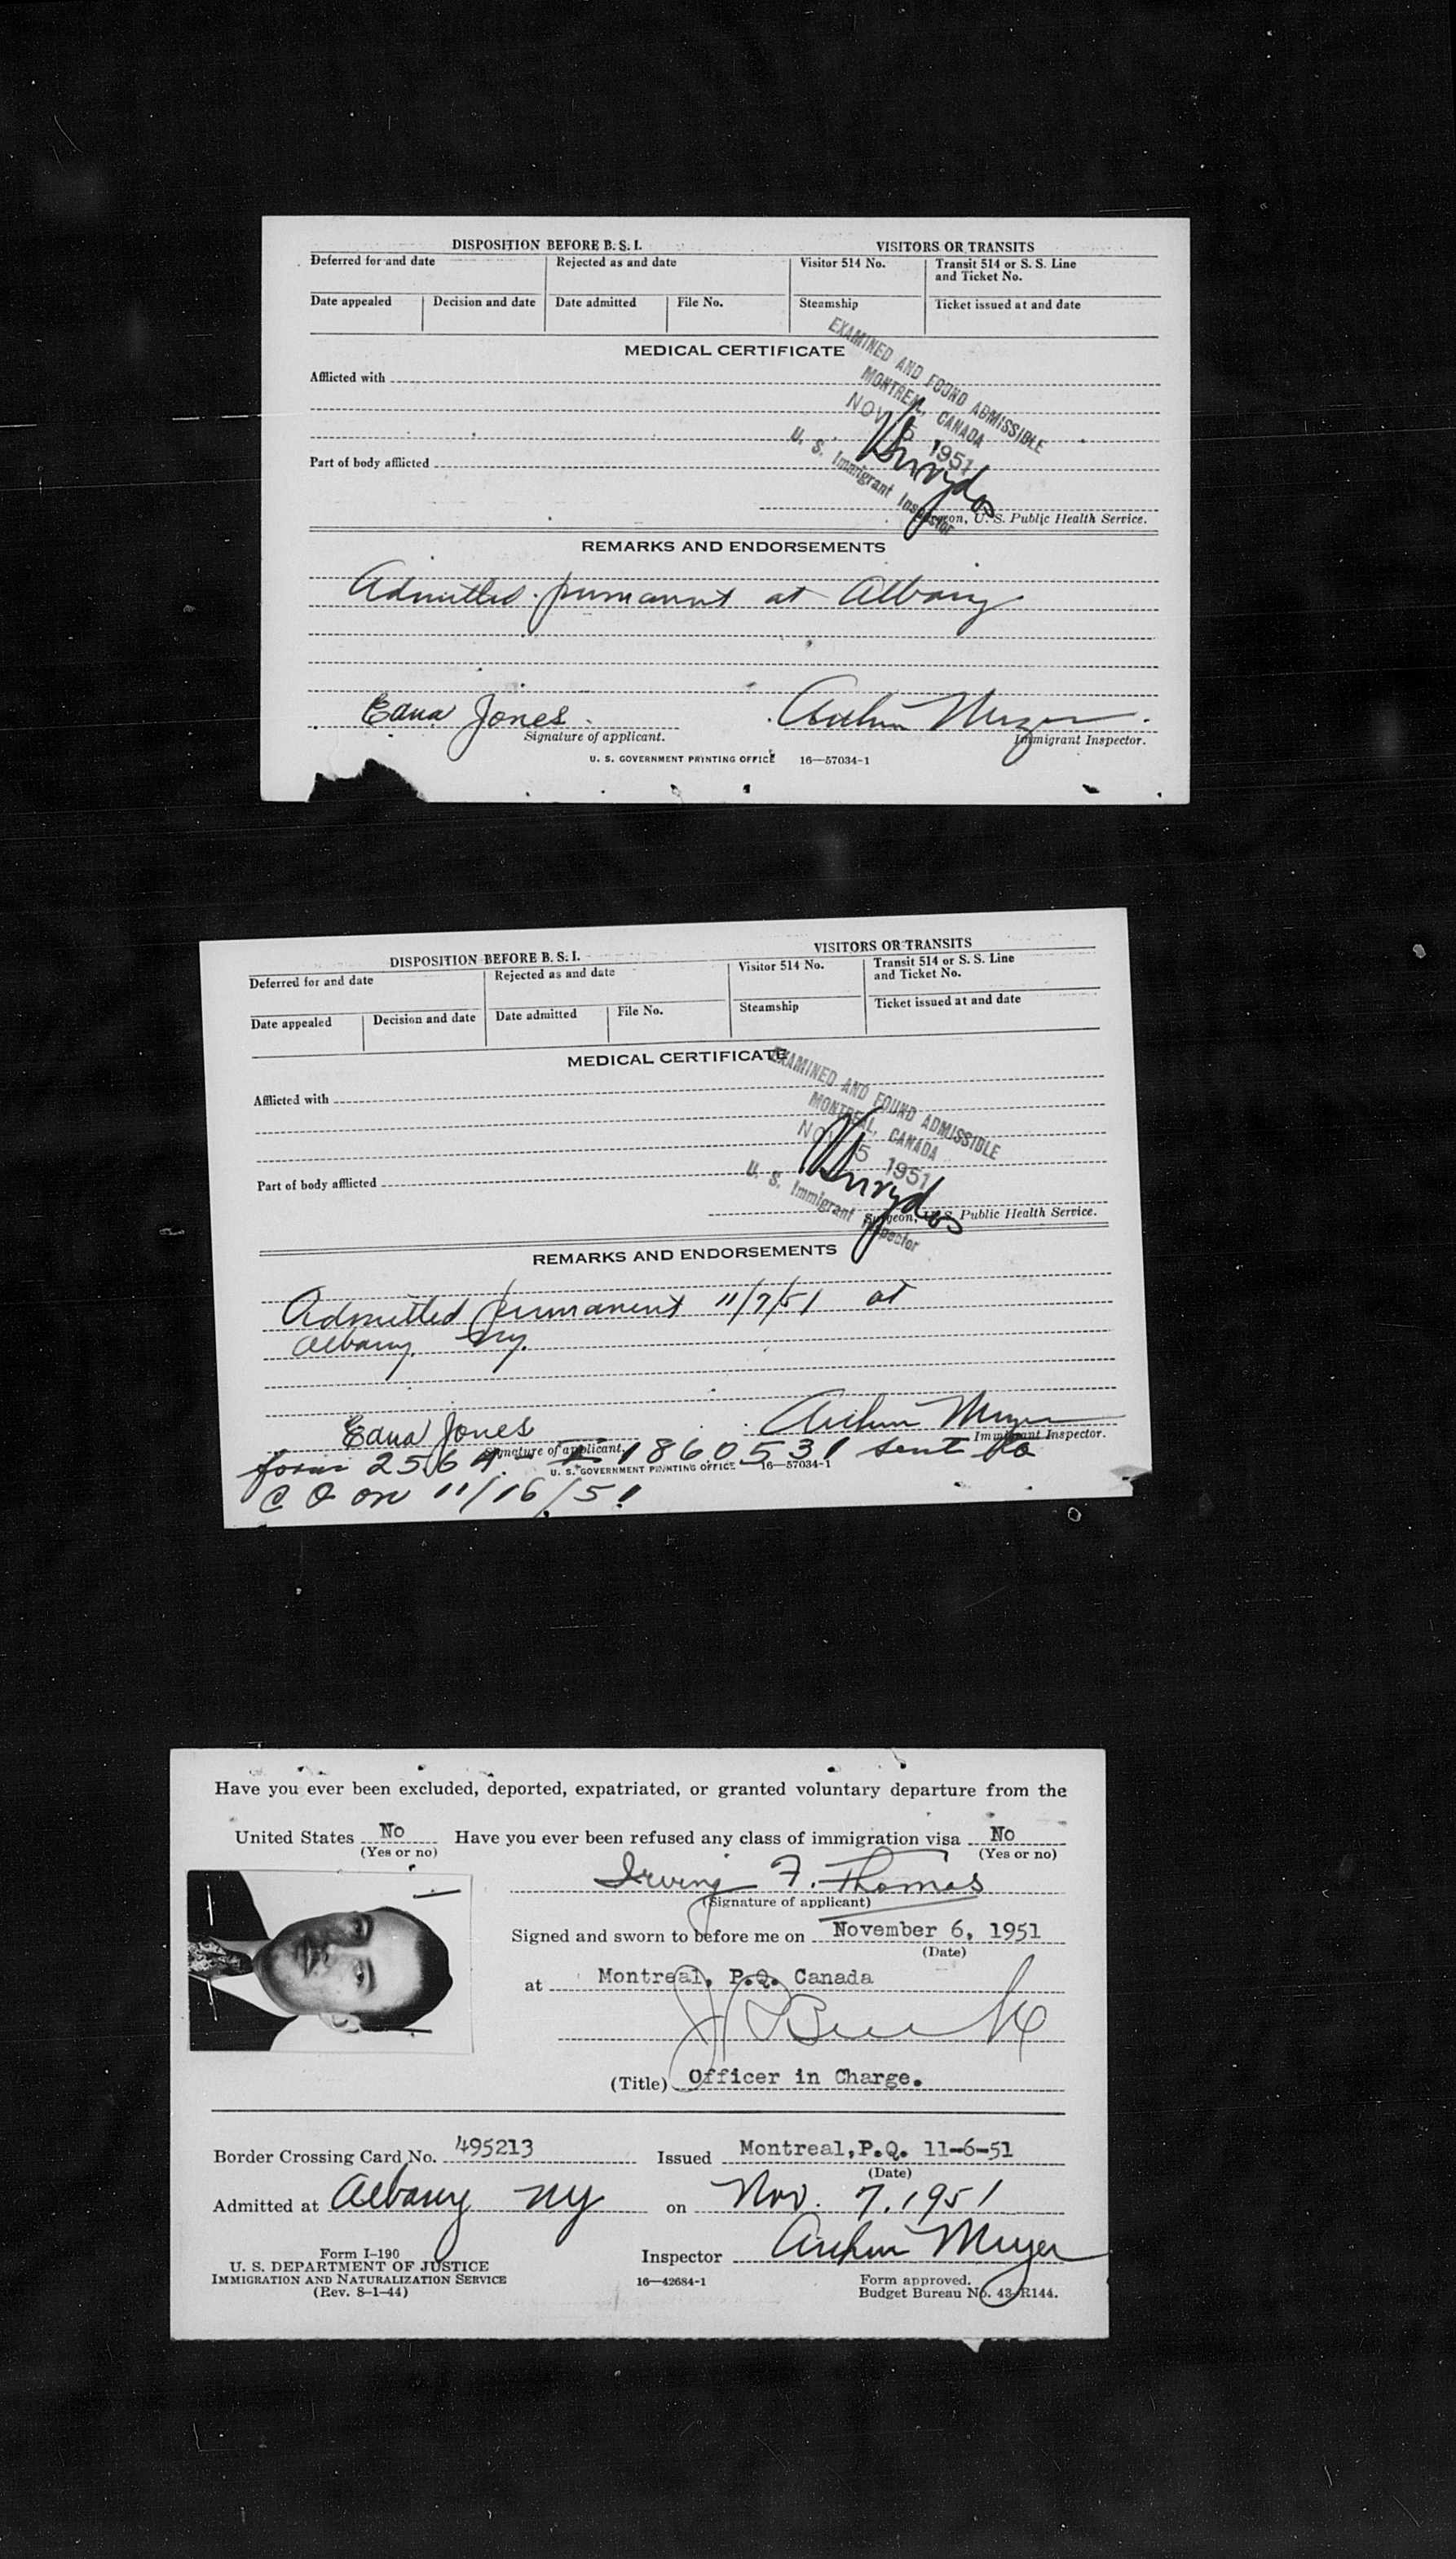 DISPOSITION BEFORE B. S. I. VISITORS OR TRANSITS
Deferred for and date Rejected as and date Visitor 514 No. Transit 514 or S. S. Line and Ticket No.
Date appealed Decision and date Date admitted File No. Steamship Ticket issued at and date
MEDICAL CERTIFICATE
Afflicted with
EXAMINED AND FOUND ADMISSIBLE
MONTREAL, CANADA
NOV 5 1951
U. S. Immigrant Inspector
Part of body afflicted
Surgeon, U. S. Public Health Service.
REMARKS AND ENDORSEMENTS
Admitted permanent at Albany
Edna Jones Arthur Meyer
Signature of applicant. Immigrant Inspector.
U. S. GOVERNMENT PRINTING OFFICE 16—57034-1
DISPOSITION BEFORE B. S. I. VISITORS OR TRANSITS
Deferred for and date Rejected as and date Visitor 514 No. Transit 514 or S. S. Line and Ticket No.
Date appealed Decision and date Date admitted File No. Steamship Ticket issued at and date
MEDICAL CERTIFICATE
Afflicted with
EXAMINED AND FOUND ADMISSIBLE
MONTREAL, CANADA
NOV 5 1951
U. S. Immigrant Inspector
Part of body afflicted
Surgeon, U. S. Public Health Service.
REMARKS AND ENDORSEMENTS
Admitted permanent 11/7/51 at
Albany. Ny.
Edna Jones Arthur Meyer
Signature of applicant. Immigrant Inspector.
form 256 A - I 1860531 sent to
U. S. GOVERNMENT PRINTING OFFICE 16—57034-1
C O on 11/16/51
Have you ever been excluded, deported, expatriated, or granted voluntary departure from the
United States No Have you ever been refused any class of immigration visa No
(Yes or no) (Yes or no)
Irving F. Thomas
(Signature of applicant)
Signed and sworn to before me on November 6, 1951
(Date)
at Montreal, P.Q. Canada
(Title) Officer in Charge.
Border Crossing Card No. 495213 Issued Montreal,P.Q. 11-6-51
(Date)
Admitted at Albany NY on Nov. 7, 1951
Inspector Arthur Meyer
Form I-190
U. S. DEPARTMENT OF JUSTICE
IMMIGRATION AND NATURALIZATION SERVICE
(Rev. 8-1-44)
16—42684-1
Form approved.
Budget Bureau No. 43-R144.